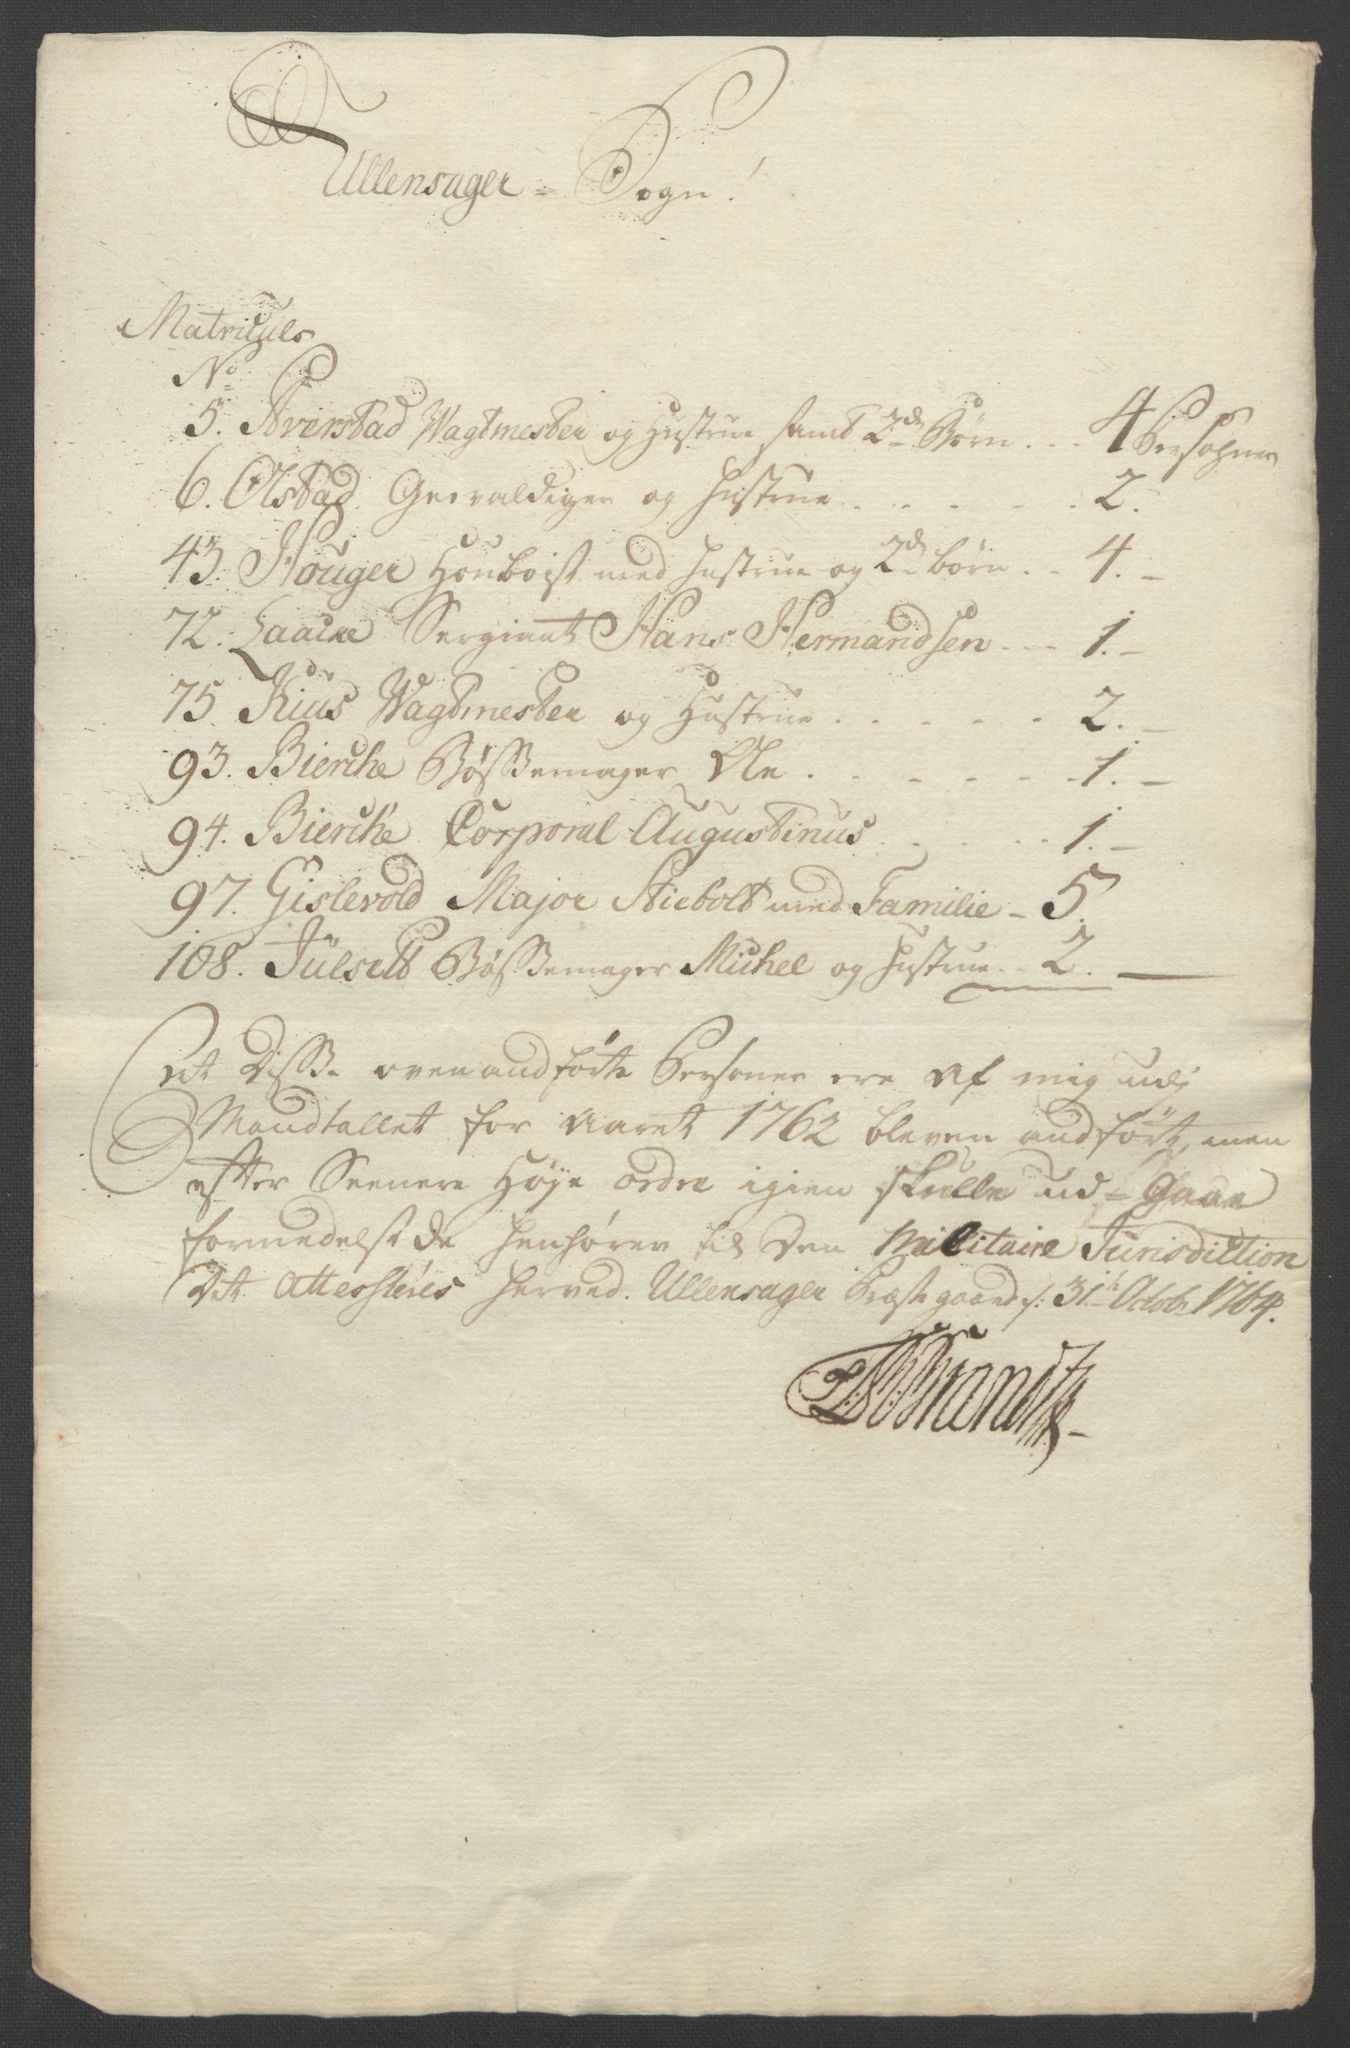 Ullensager = Sogn!
Matriculs
No
5. Averstad Wagtmester og Hustrue samt 2de Børn - - - 4 Persohner
6. Olstad Gevaldiger og Hustrue - - - - - 2.
43. Houger Houboist med Hustrue og 2de børn - - 4. -
72. Laacke Sergiant Hans Hermandsen - - - 1. -
75. Kius Wagtmester og Hustrue - - - - - 2. -
93. Bierche Bøssemager Ole - - - - - - 1. -
94. Bierche Corporal Augustinus - - - - - 1. -
97. Gislevold Major Stiebolt med Familie - 5.
108. Julsett Bøssemager Michel og Hustrue - - 2.
At Disse ovenandførte Personer ere af mig udj
Mandtallet for Aaret 1762 bleven andført, men
efter Seenere Høje ordre igien skulle ud = Gaae
formedelst de henhører til Den Militaire Jurisdiction
Det Attesteres herved. Ullensager Præstegaard /: 31th Octobr 1764.
Brandt